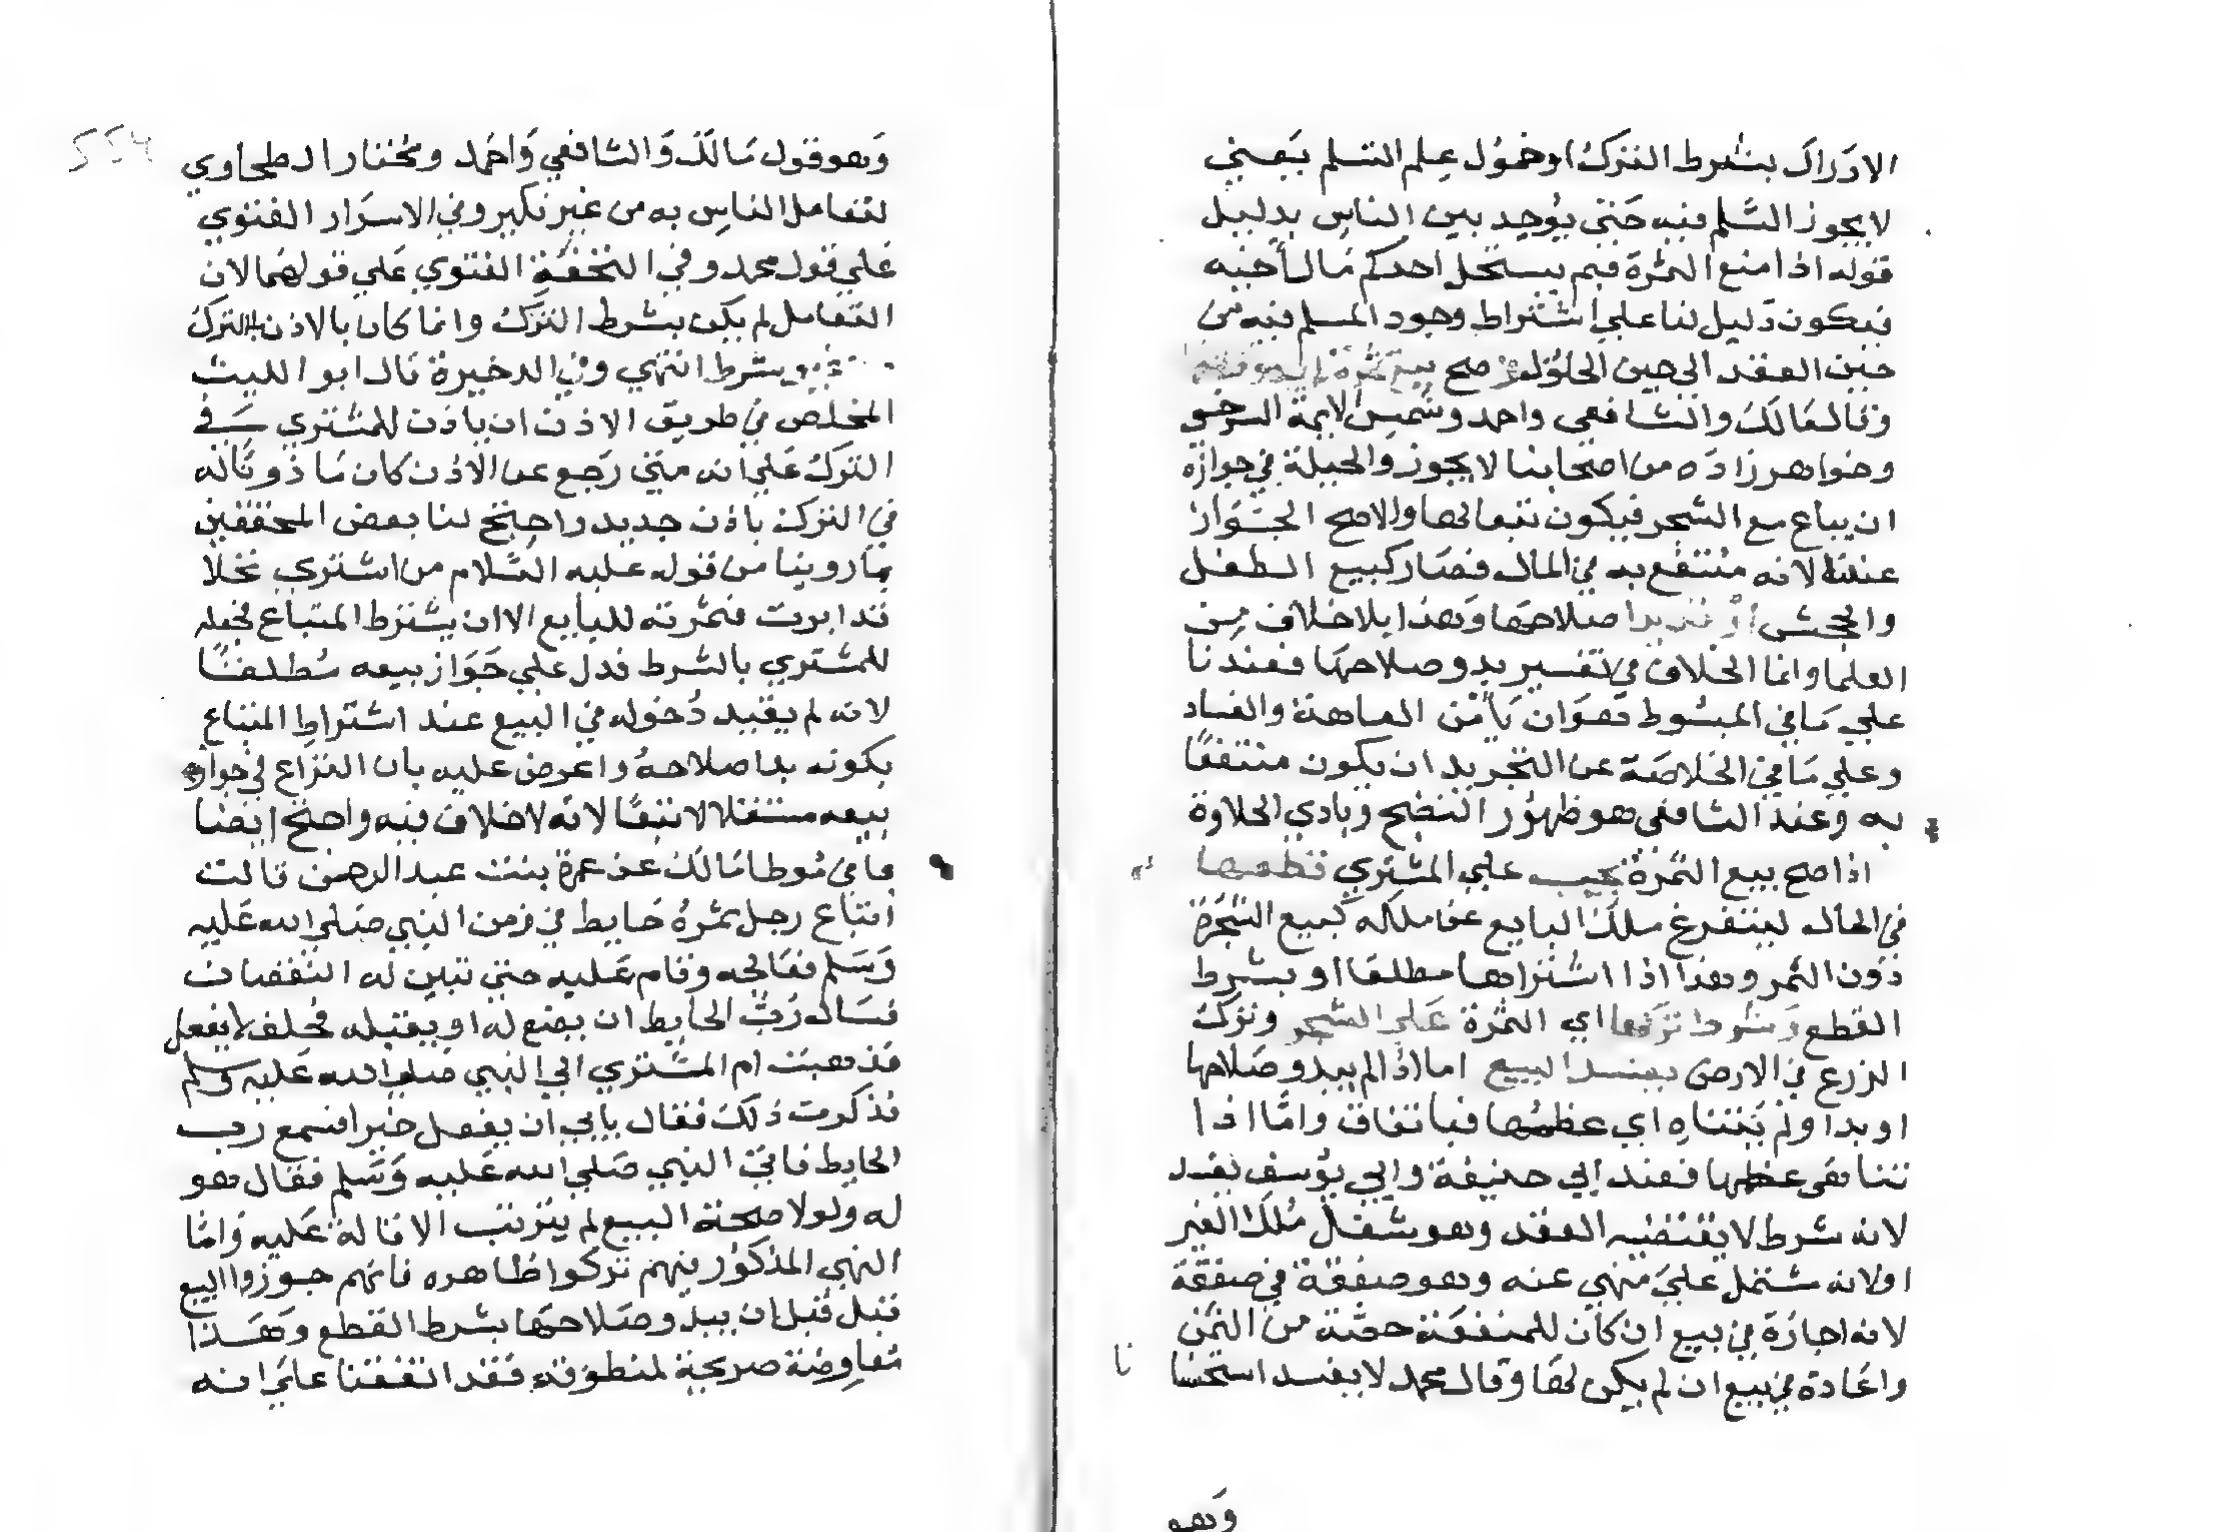 الادراك بشرط الترك او خمول علم السلم يعني
لا يجوز السلم فيه حتى يوجد بين الناس بدليل
قوله اذا منع الثمرة فبم يستحل احدكم مال اخيه
فيكون دليل لنا على اشتراط وجود المسلم فيه من
حين العقد الى حين الحلول وصح بيع ثمرة لم
وقال مالك والشافعي واحمد وشمس الايمة السرخسي
وخواهر زاده من اصحابنا لا يجوز والحيلة في جوازه
ان يباع مع الشجر فيكون تبعا لها والاصح الجواز
عندنا لانه منتفع به في المال فصار كبيع الطفل
والجحش او قد بدا صلاحها وهذا بلا خلاف من
العلما وانما الخلاف في تفسير بدو صلاحها فعندنا
على ما في المبسوط هو ان يأمن العاهة والفساد
وعلى ما في الخلاصة عن التجريد ان يكون منتفعا
به وعند الشافعي هو ظهور النضج وبادي الحلاوة
اذا صح بيع الثمرة يجب على المشتري قطعها
في الحال ليتفرغ ملك البايع عن ملكه كبيع الشجرة
دون الثمر وهذا اذا اشتراها مطلقا او بشرط
القطع وشرط تركها اي الثمرة على الشجر وترك
الزرع في الارض يفسد البيع اما اذا لم يبد وصلاحها
او بدا ولم يتناه اي عظمها فباتفاق واما اذا
تناهى عظمها فعند ابي حنيفة وابي يوسف يفسد
لانه شرط لا يقتضيه العقد وهو شغل ملك الغير
او لانه شتمل على منهي عنه وهو صفقة في صفقة
لانه اجارة في بيع ان كان للمنفعة حصة من الثمن
واعادة في بيع ان لم يكن لها وقال محمد لا يفسد استحسا
نا
وهو
وهو قول مالك والشافعي واحمد ومختار الطحاوي
لتعامل الناس به من غير نكير وفي الاسرار الفتوى
على قول محمد وفي التحفة الفتوي على قولهما لان
التعامل لم يكن بشرط الترك وانما كان بالاذن بالترك
بشرط انتهي وفي الذخيرة قال ابو الليث
المخلص في طريق الاذن ان ياذن للمشتري في
الترك على انه متى رجع عن الاذن كان ماذونا له
في الترك باذن جديد واحتج لنا بعض المحققين
بما روينا من قوله عليه السلام من اشتري نخلا
قد ابرت فثمرته للبايع الا ان يشترط المبتاع فجعله
للمشتري بالشرط فدل على جواز بيعه مطلقا
لانه لم يقيد دخوله في البيع عند اشتراط المبتاع
بكونه بدا صلاحه واعرض عليه بان النزاع في جواز
بيعه مستقلا لا تبعا لانه لا خلاف فيه واحتج ايضا
بما في موطا مالك عن عمرة بنت عبد الرحمن قالت
ابتاع رجل ثمرة حايط في زمن النبي صلى الله عليه
وسلم فعالجه وقام عليه حتى تبين له النقصان
فسال رب الحايط ان يضع له او يقيله فحلف لا يفعل
فذهبت ام المشتري الى النبي صلى الله عليه وسلم
فذكرت ذلك فقال يابى ان يفعل خيرا فسمع رب
الحايط فاتى النبي صلى الله عليه وسلم فقال هو
له ولولا صحة البيع لم يترتب الاقالة عليه واما
النهي المذكور فهم تركوا ظاهره فانهم جوزوا البيع
قبل قبل ان يبدو صلاحها بشرط القطع وهذا
معارضة صريحة لمنطوقه فقد اتفقنا على انه